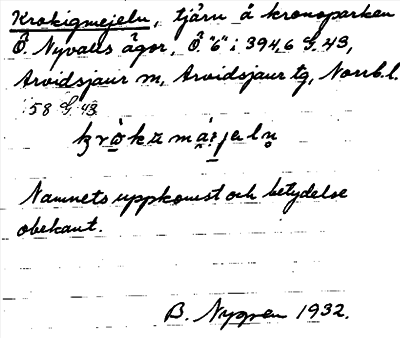 Krokigmejeln, tjärn å kronoparken
Ö. Nyvalls ägor, Ö. "6" i 394,6 G. 43,
Arvidsjaur sn, Arvidsjaur tg, Norrb. l.
i 58 G. 43.
Namnets uppkomst och betydelse
obekant.
B. Nygren 1932.